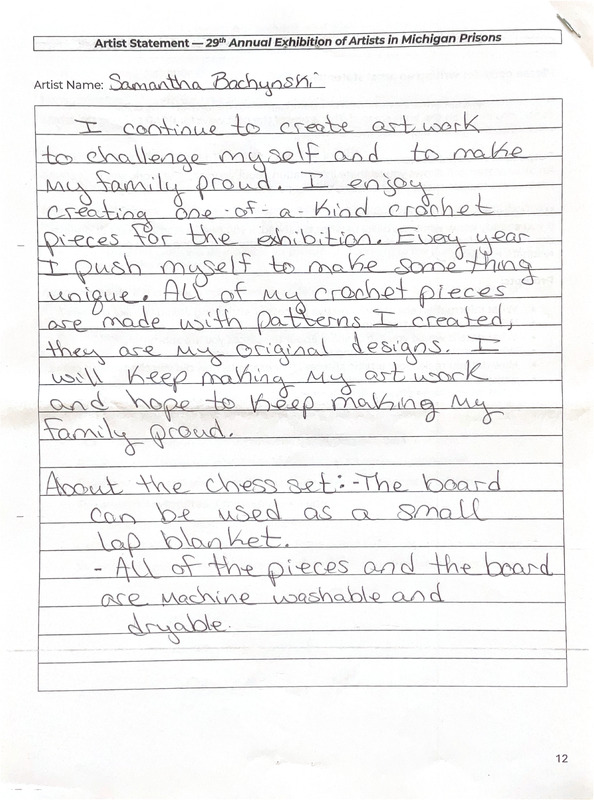 Artist Statement — 29th Annual Exhibition of Artists in Michigan Prisons
Artist Name: Samantha Bachynski
I continue to create art work
to challenge myself and to make
my family proud. I enjoy
creating one-of-a-kind crochet
pieces for the exhibition. Every year
I push myself to make something
unique. All of my crochet pieces
are made with patterns I created,
they are my original designs. I
will keep making my art work
and hope to keep making my
family proud.
About the chess set:-The board
can be used as a small
lap blanket.
- All of the pieces and the board
are machine washable and
dryable.
12